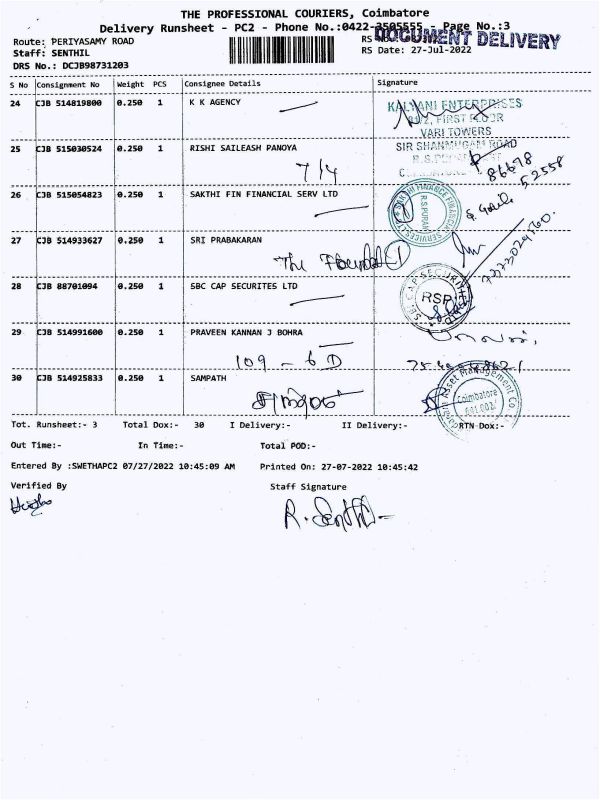 THE PROFESSIONAL COURIERS, Coimbatore
Delivery Runsheet - PC2 - Phone No.:0422-3505555 - Page No.:3
Route: PERIYASAMY ROAD
DOCUMENT DELIVERY
Staff: SENTHIL
RS Date: 27-Jul-2022
DRS No.: DCJB98731203
S No Consignment No Weight PCS Consignee Details Signature
24 CJB 514819800 0.250 1 K K AGENCY
KALYANI ENTERPRISES
81/2, FIRST FLOOR
VARI TOWERS
25 CJB 515030524 0.250 1 RISHI SAILEASH PANOYA
SIR SHANMUGAM ROAD
7/4
86678
52558
26 CJB 515054823 0.250 1 SAKTHI FIN FINANCIAL SERV LTD
SAKTHI FINANCE FINANCIAL SERVICES LTD
R.S.PURAM
27 CJB 514933627 0.250 1 SRI PRABAKARAN
The
28 CJB 88701094 0.250 1 SBC CAP SECURITES LTD
CAP SECURITIES
RSP
29 CJB 514991600 0.250 1 PRAVEEN KANNAN J BOHRA
109 - 6 D
30 CJB 514925833 0.250 1 SAMPATH
Asset Management Co.
Coimbatore
641 002
Tot. Runsheet:- 3 Total Dox:- 30 I Delivery:- II Delivery:- RTN Dox:-
Out Time:- In Time:- Total POD:-
Entered By :SWETHAPC2 07/27/2022 10:45:09 AM Printed On: 27-07-2022 10:45:42
Verified By Staff Signature
R. Senthil